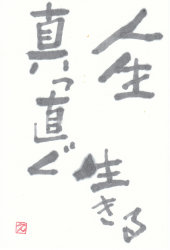 人生
真っ直ぐ
生きる